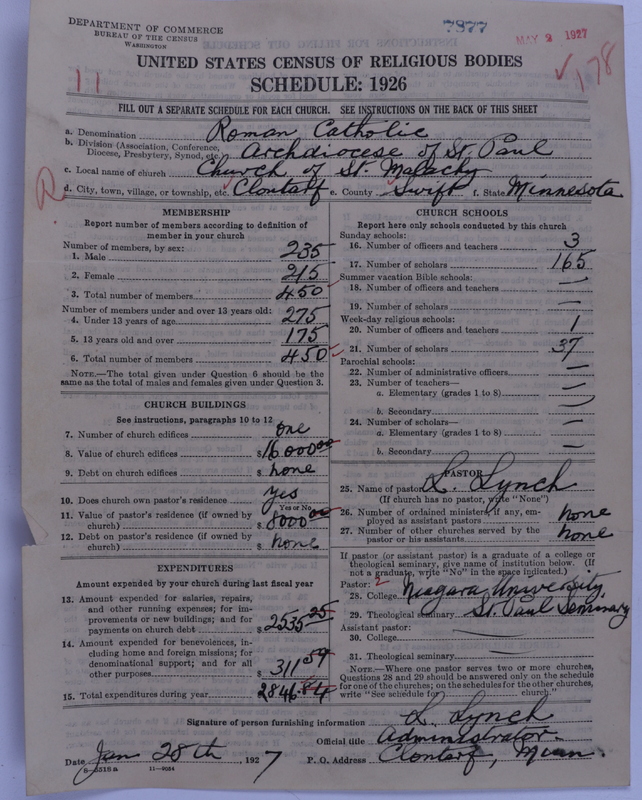 DEPARTMENT OF COMMERCE
BUREAU OF THE CENSUS
WASHINGTON
7877
MAY 2 1927
UNITED STATES CENSUS OF RELIGIOUS BODIES
SCHEDULE: 1926
11
178
FILL OUT A SEPARATE SCHEDULE FOR EACH CHURCH. SEE INSTRUCTIONS ON THE BACK OF THIS SHEET
a. Denomination Roman Catholic
b. Division (Association, Conference, Diocese, Presbytery, Synod, etc.) Archdiocese of St. Paul
c. Local name of church Church of St. Malachy
d. City, town, village, or township, etc. Clontarf e. County Swift f. State Minnesota
R
MEMBERSHIP
Report number of members according to definition of
member in your church
Number of members, by sex:
1. Male 235
2. Female 215
3. Total number of members 450
Number of members under and over 13 years old:
4. Under 13 years of age 275
5. 13 years old and over 175
6. Total number of members 450
NOTE.—The total given under Question 6 should be the
same as the total of males and females given under Question 3.
CHURCH BUILDINGS
See instructions, paragraphs 10 to 12
7. Number of church edifices one
8. Value of church edifices $16000 00
9. Debt on church edifices $ none
10. Does church own pastor's residence yes
Yes or No
11. Value of pastor's residence (if owned by
church) $8000 00
12. Debt on pastor's residence (if owned by
church) $ none
EXPENDITURES
Amount expended by your church during last fiscal year
13. Amount expended for salaries, repairs,
and other running expenses; for im-
provements or new buildings; and for
payments on church debt $ 2535 25
14. Amount expended for benevolences, in-
cluding home and foreign missions; for
denominational support; and for all
other purposes $ 311 59
15. Total expenditures during year 2846.84
CHURCH SCHOOLS
Report here only schools conducted by this church
Sunday schools:
16. Number of officers and teachers 3
17. Number of scholars 165
Summer vacation Bible schools:
18. Number of officers and teachers —
19. Number of scholars —
Week-day religious schools:
20. Number of officers and teachers 1
21. Number of scholars 37
Parochial schools:
22. Number of administrative officers —
23. Number of teachers—
a. Elementary (grades 1 to 8) —
b. Secondary —
24. Number of scholars—
a. Elementary (grades 1 to 8) —
b. Secondary —
PASTOR
25. Name of pastor L. Lynch
(If church has no pastor, write "None")
26. Number of ordained ministers, if any, em-
ployed as assistant pastors none
27. Number of other churches served by the
pastor or his assistants none
If pastor (or assistant pastor) is a graduate of a college or
theological seminary, give name of institution below. (If
not a graduate, write "No" in the space indicated.)
Pastor: 2
28. College Niagara University
29. Theological seminary St. Paul Seminary
Assistant pastor:
30. College —
31. Theological seminary —
NOTE.—Where one pastor serves two or more churches,
Questions 28 and 29 should be answered only on the schedule
for one of the churches; on the schedules for the other churches,
write "See schedule for church."
Signature of person furnishing information L. Lynch
Official title Administrator
Date Jan 28th, 1927 P. O. Address Clontarf, Minn.
8—5518a 11—9054